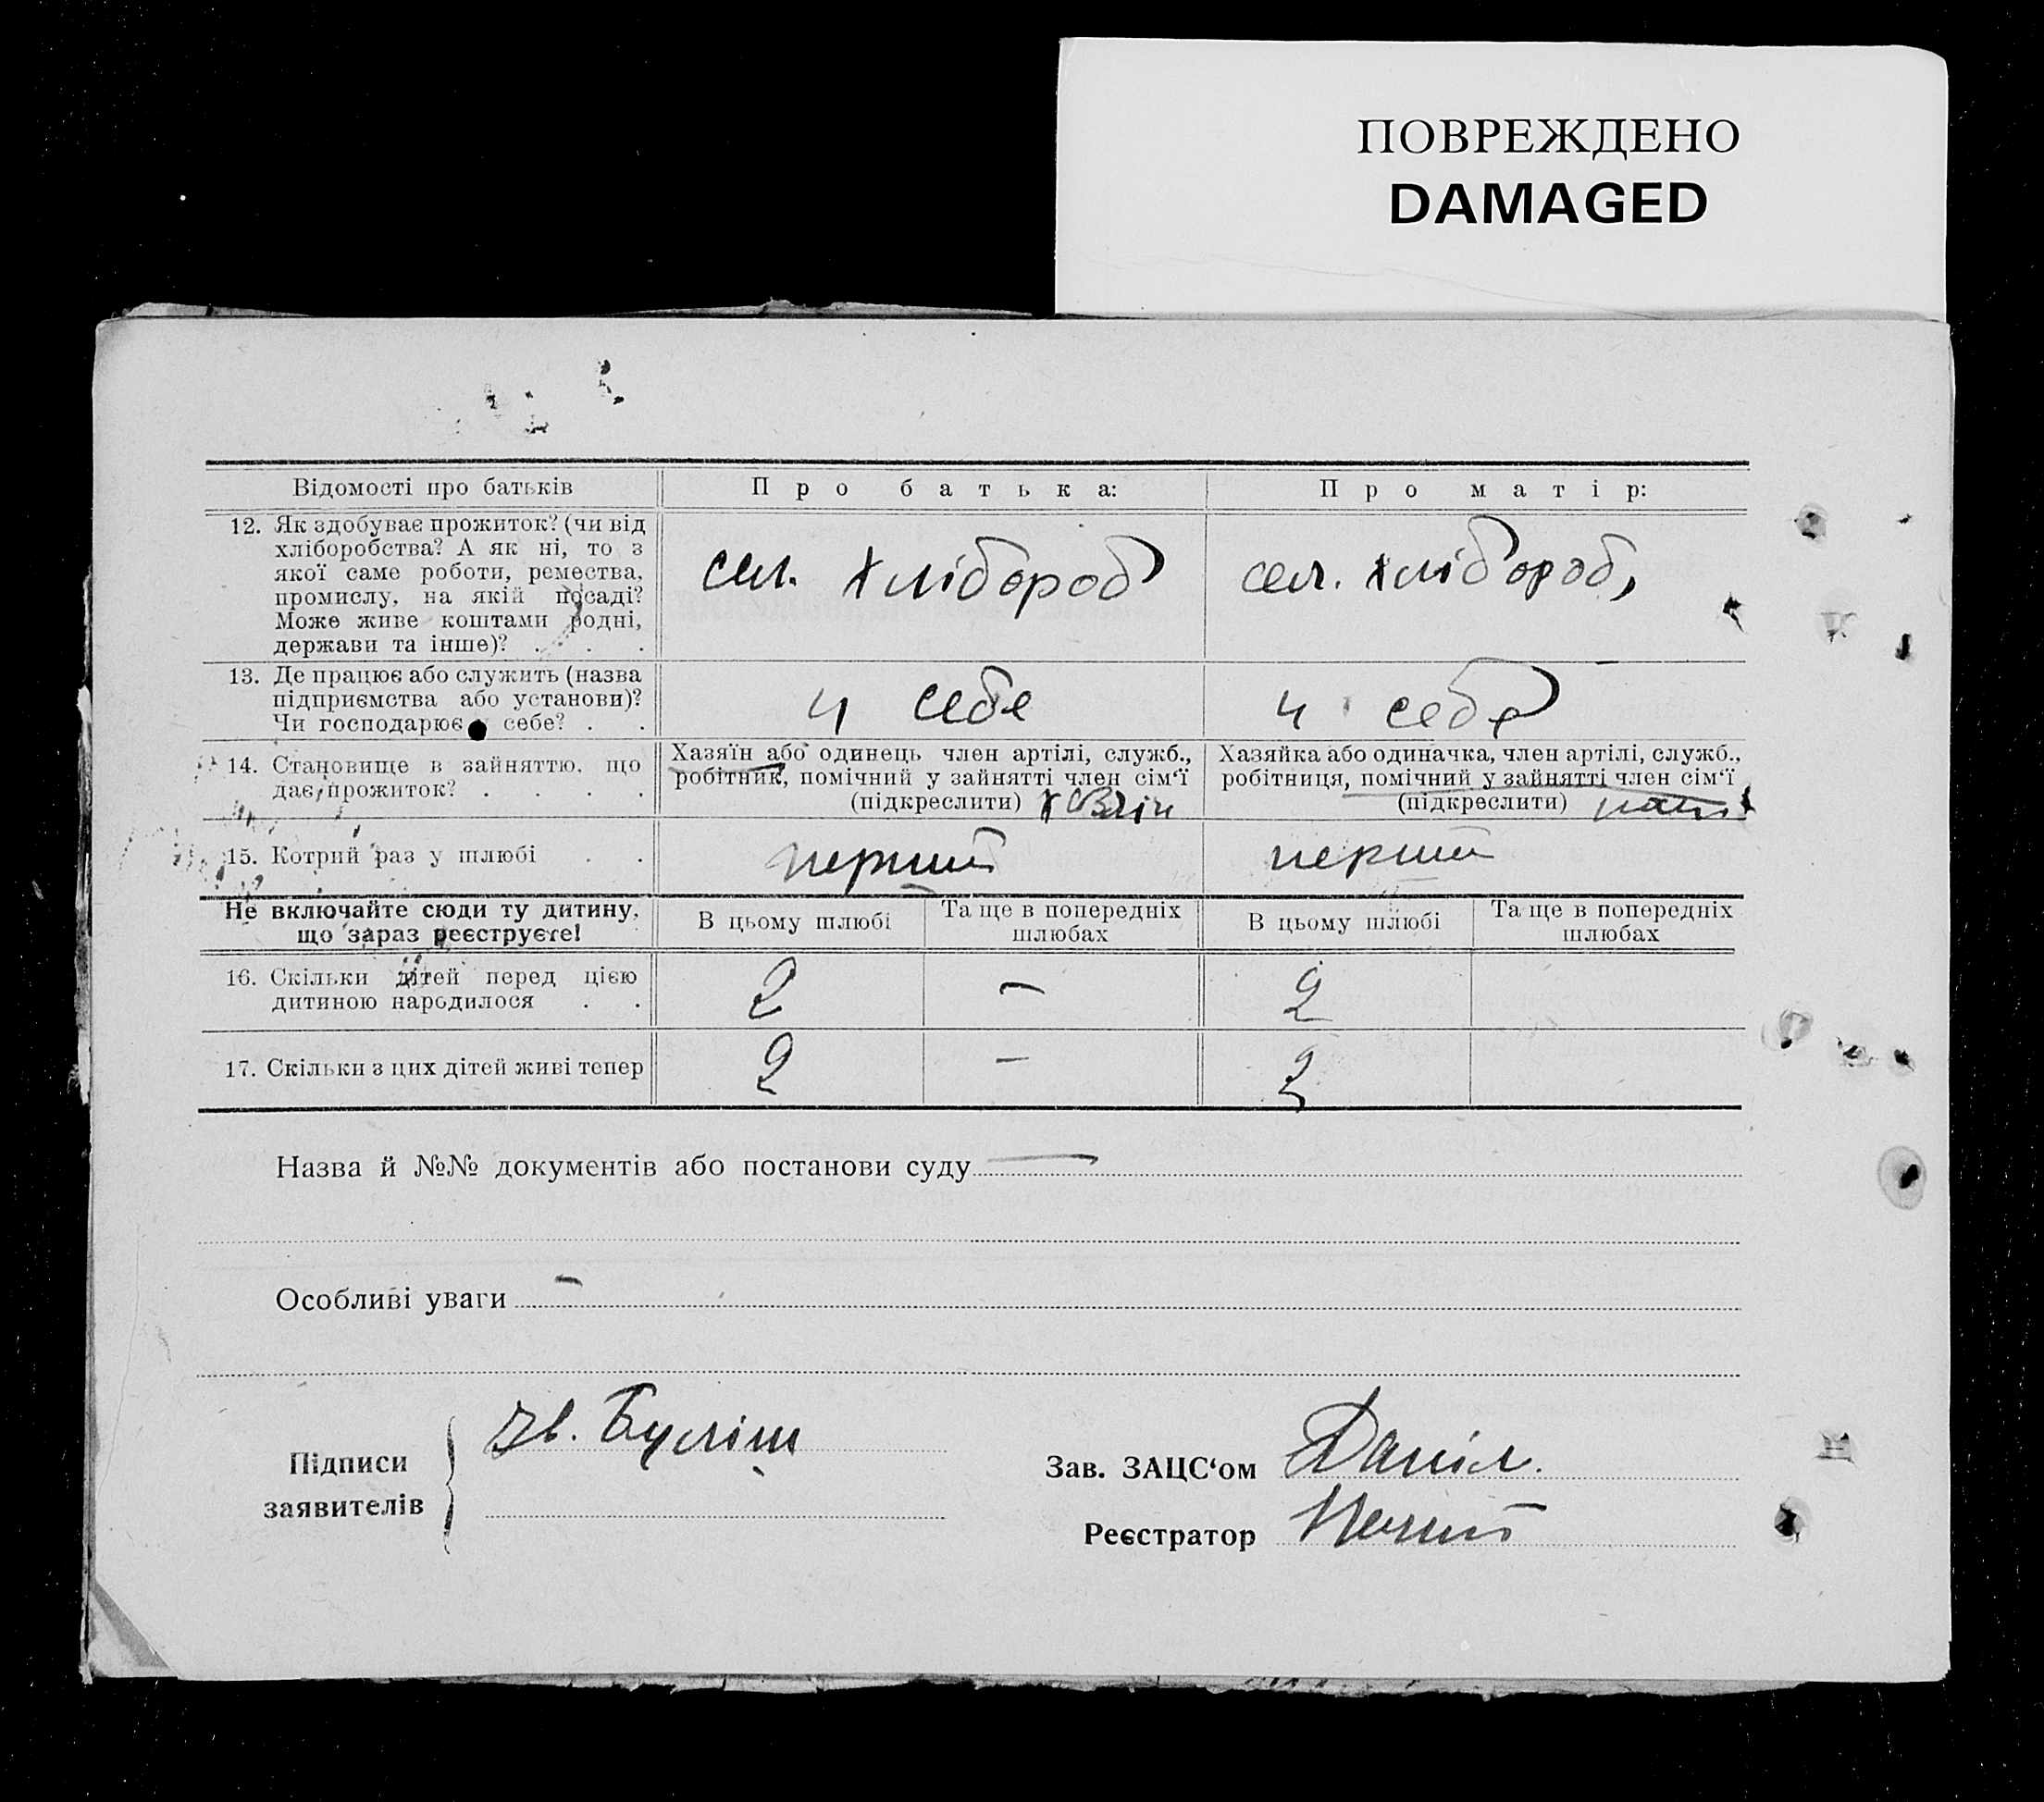 ПОВРЕЖДЕНО
DAMAGED
Відомості про батьків
Про батька:
Про матір:
12. Як здобуває прожиток? (чи від
хліборобства? А як ні, то з
якої саме роботи, ремества,
промислу, на якій посаді?
Може живе коштами родні,
держави та інше)? . . .
сел. хлібороб
сел. хлібороб,
13. Де працює або служить (назва
підприємства або установи)?
Чи господарює у себе? . .
у себе
у себе
14. Становище в зайняттю, що
дає прожиток? . . . .
Хазяїн або одинець член артілі, служб.,
робітник, помічний у зайнятті член сім‘ї
(підкреслити)
Хазяйка або одиначка, член артілі, служб.,
робітниця, помічний у зайнятті член сім‘ї
(підкреслити)
15. Котрий раз у шлюбі . .
перший
перший
Не включайте сюди ту дитину,
що зараз реєструєте!
В цьому шлюбі
Та ще в попередніх
шлюбах
В цьому шлюбі
Та ще в попередніх
шлюбах
16. Скільки дітей перед цією
дитиною народилося . .
2
—
2
17. Скільки з цих дітей живі тепер
2
—
2
Назва й №№ документів або постанови суду —
Особливі уваги —
Підписи
заявителів
Зав. ЗАЦС‘ом Даніл.
Реєстратор